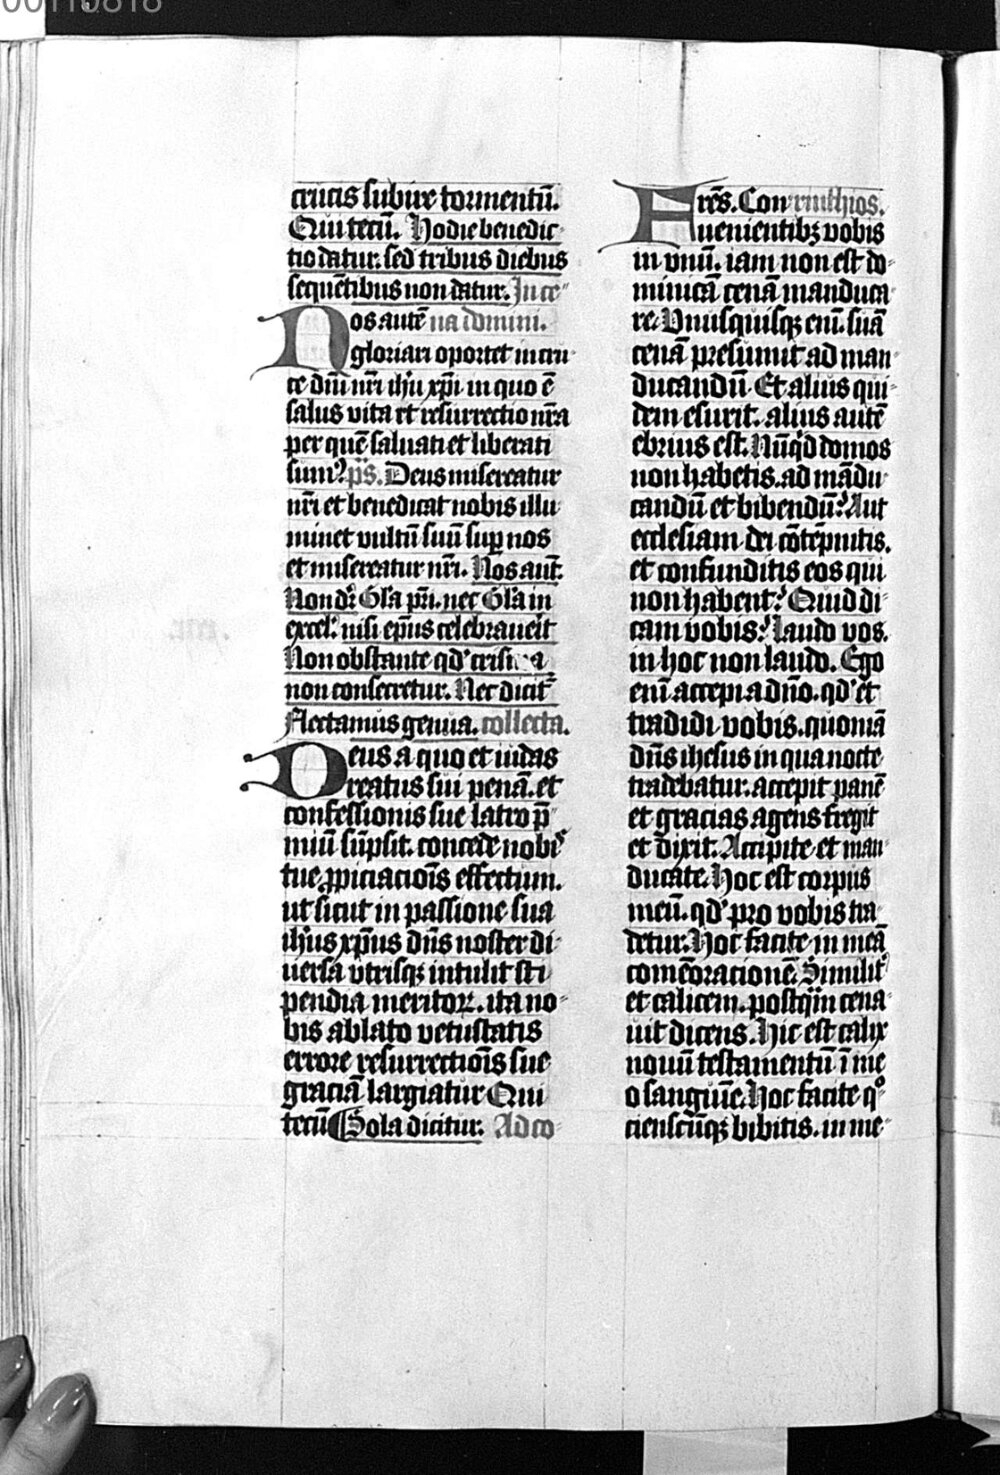 00110818
crucis subire tormentū.
Qui tecū. Hodie benedic
tio datur. sed tribus diebus
sequētibus non datur. In ce
Nos autē na domini.
gloriari oportet in cru
ce dn̄i nr̄i ih̄u xp̄i in quo ē
salus vita et resurrectio nr̄a
per quē saluati et liberati
sumꝰ. p̄s. Deus misereatur
nr̄i et benedicat nobis illu
minet vultū suū sup nos
et misereatur nr̄i. Nos aut̄.
Non dr̄ Gl̄a pr̄i. nec Gl̄a in
excel. nisi ep̄us celebrauerit
Non obstante qd' crisma
non consecretur. Nec dicit̄
Flectamus genua. collecta.
Deus a quo et iudas
reatus sui penā. et
confessionis sue latro p̄
miū sūpsit. concede nobis
tue ꝓpiciacōis effectum.
ut sicut in passione sua
ih̄us xp̄us dn̄s noster di
uersa vtrisqꝫ intulit sti
pendia meritoꝝ. ita no
bis ablato vetustatis
errore resurrectiōis sue
graciā largiatur Qui
tecū Sola dicitur. Ad co
Frēs. Con rinthios.
uenientibꝫ vobis
in vnū. iam non est do
minicā cenā manduca
re. Vnusquisqꝫ enī. suā
cenā presumit ad man
ducandū. Et alius qui
dem esurit. alius autē
ebrius est. Nūqd domos
non habetis. ad mādu
candū et bibendū? Aut
ecclesiam dei cōtēpnitis.
et confunditis eos qui
non habent? Quid di
cam vobis? laudo vos.
in hoc non laudo. Ego
enī accepi a dn̄o. qd' et
tradidi vobis. quoniā
dn̄s ihesus in qua nocte
tradebatur. accepit panē
et gracias agens fregit
et dixit. Accipite et man
ducate. Hoc est corpus
meū. qd' pro vobis tra
detur. Hoc facite in meā
comēoracionē. Similit̄
et calicem. postq̄m cena
uit dicens. Hic est calix
nouū testamentū ī me
o sanguīe. Hoc facite qͦ
cienscūqꝫ bibitis. in me